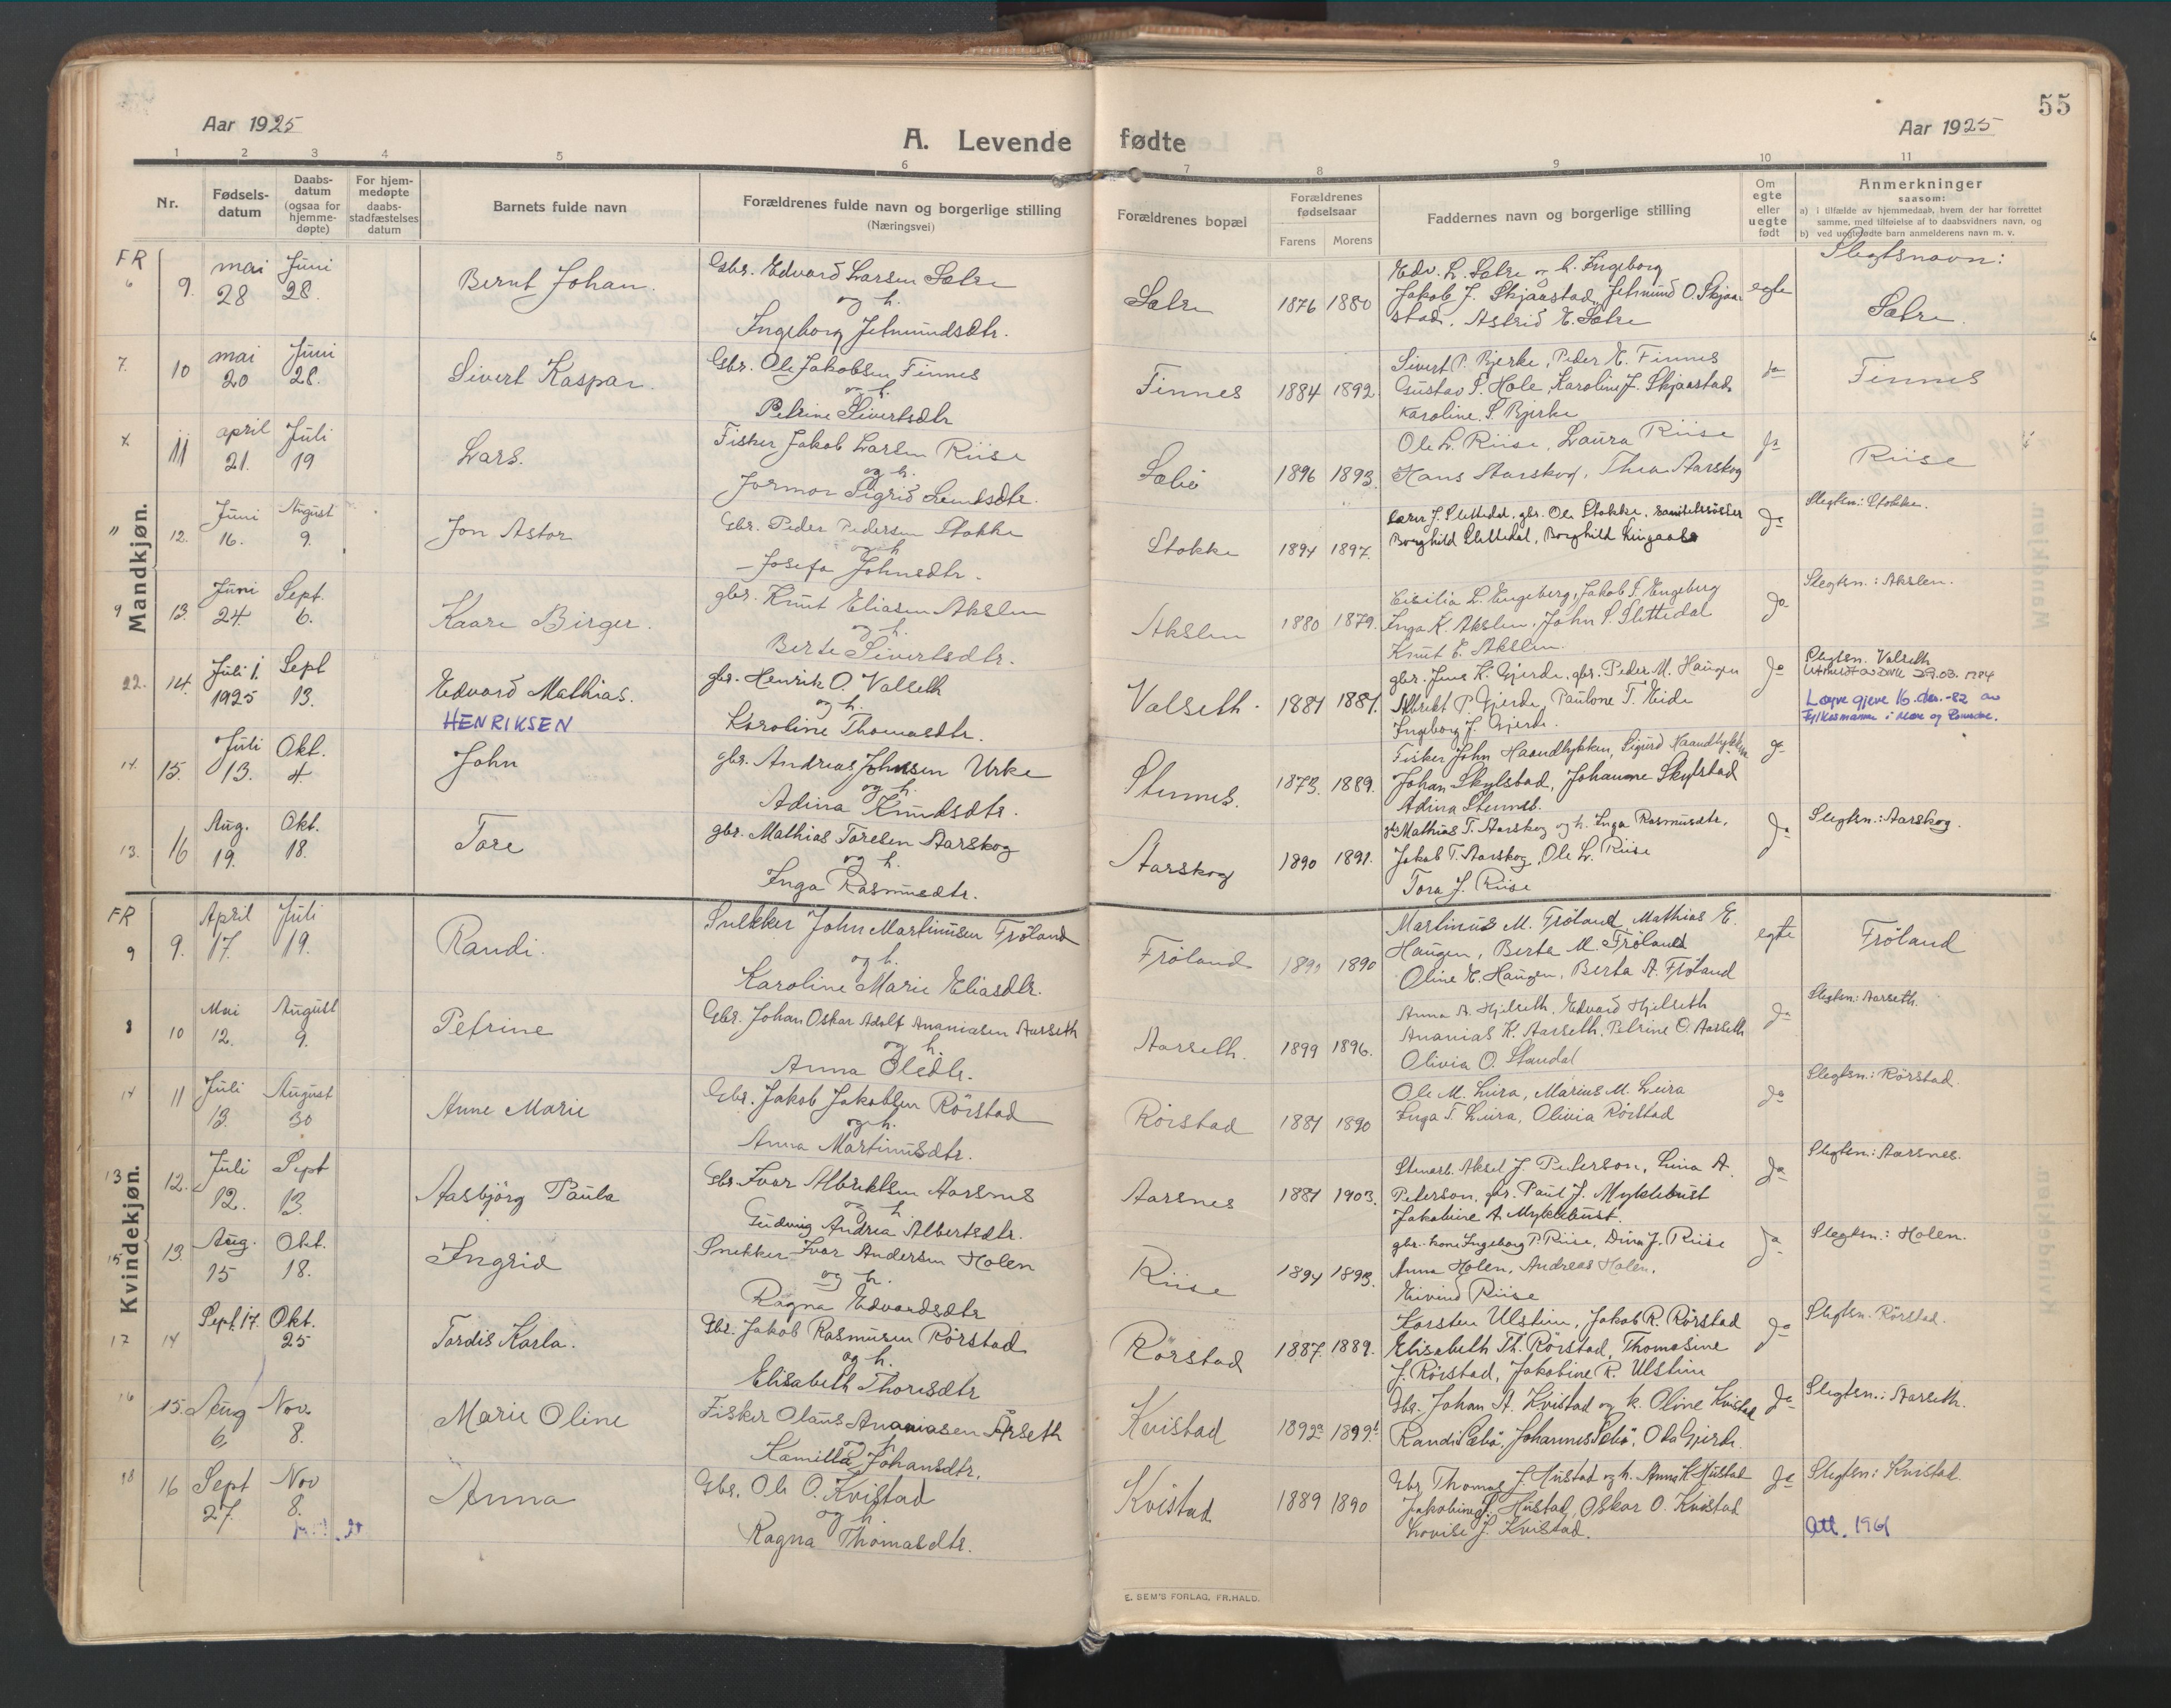 55
Aar 1925
A. Levende fødte
Aar 1925
1 2 3 4 5 6 7 8 9 10 11
Nr.
Fødsels-
datum
Daabs-
datum
(ogsaa for
hjemme-
døpte)
For hjem-
medøpte
daabs-
stadfæstelses
datum
Barnets fulde navn
Forældrenes fulde navn og borgerlige stilling
(Næringsvei)
Forældrenes bopæl
Forældrenes
fødselsaar
Farens Morens
Faddernes navn og borgerlige stilling
Om
egte
eller
uegte
født
Anmerkninger
saasom:
a) i tilfælde av hjemmedaab, hvem der har forrettet
samme, med tilføielse af to daabsvidners navn, og
b) ved uegtefødte barn anmelderens navn m. v.
Mandkjøn.
FR
6 9. mai 28 Juni 28.
Bernt Johan.
Gbr. Edvard Larsen Sætre
og h.
Ingeborg Jetmundsdtr.
Sætre 1876 1880
Edv. L. Sætre og h. Ingeborg
Jakob J. Skjaastad, Jetmund O. Skjaa-
stad, Astrid E. Sætre
egte
Slegtsnavn:
Sætre.
7. 10 mai 20 Juni 28.
Sivert Kaspar.
Gbr. Ole Jakobsen Finnes
og h.
Petrine Sivertsdtr
Finnes 1884 1892
Sivert P. Bjerke, Peder E. Finnes
Gustav S. Hole, Karoline J. Skjaastad
Karoline S. Bjerke
ja
Finnes
11 april 21. Juli 19
Lars.
Fisker Jakob Larsen Riise
og h.
Jormor Sigrid
Sæbø 1896 1893.
Ole L. Riise, Laura Riise
Hans Aarskog, Thea Aarskog
ja
Riise
11 12. Juni 16. August 9.
Jon Astor
Gbr. Peder Pedersen Stokke
og h.
Josefa Johnsdtr.
Stokke 1894 1897.
Lærer J. Slettedal, gbr. Ole Stokke, sanitetssøster
Borghild Slettedal, Borghild
Ja
Slegtsn.: Stokke.
9 13. Juni 24. Sept. 6.
Kaare Birger.
gbr. Knut Eliasen Akslen
og h.
Berte Sivertsdtr.
Akslen 1880 1879.
Cisilia L. Engeberg, Jakob P. Engeberg
Inga K. Akslen, John S. Slettedal
Knut E. Akslen.
Ja
Slegtsn.: Akslen.
22. 14. Juli 1. 1925 Sept 13.
Edvard Mathias.
HENRIKSEN
gbr. Henrik O. Valseth
og h.
Karoline Thomasdtr.
Valseth. 1881 1881.
gbr. Jens K. Gjerde, gbr. Peder M. Haugen
Albrikt P. Gjerde, Paulone T. Eide
Ingeborg J. Gjerde.
Ja
Slegtsn. Valseth
Løyve gjeve 16. des.-82 av
Fylkesmannen i Møre og Romsdal.
14. 15. Juli 13. Okt. 4.
John
gbr. Andreas Johnsen Urke
og h.
Adina Knudsdtr.
Stennes. 1873. 1889.
Fisker John Haandlykken, Sigurd Haandlykken
Johan Skylstad, Johanne Skylstad
Adina Stennes.
Ja
13. 16 Aug. 19. Okt. 18.
Tore
gbr. Mathias Toresen Aarskog
og h.
Inga Rasmusdtr.
Aarskog 1890 1891.
gbr Mathias T. Aarskog og h. Inga Rasmusdtr.
Jakob T. Aarskog, Ole L. Riise
Tora J. Riise
Ja
Slegtsn.: Aarskog.
Kvindekjøn.
FR
9 9. April 17. Juli 19.
Randi.
Snekker John Martinusen Frøland
og h.
Karoline Marie Eliasdtr.
Frøland 1890 1890
Martinus M. Frøland, Mathias E.
Haugen, Berta M. Frøland
Oline E. Haugen, Berta A. Frøland
egte
Frøland
8 10 Mai 12. August 9.
Petrine
Gbr. Johan Oskar Adolf Ananiasen Aarseth
og h.
Anna Olsdtr.
Aarseth. 1899 1896.
Anna A. Hjelseth, Edvard Hjelseth
Ananias K. Aarseth, Petrine O. Aarseth
Olivia O. Standal
Ja
Slegtsn: Aarseth.
14 11 Juli 13. August 30
Anne Marie
Gbr. Jakob Jakobsen Rørstad
og h.
Anna Martinusdtr.
Rørstad 1881 1890
Ole M. Leira, Marius M. Leira
Inga T. Leira, Olivia Rørstad
Ja
Slegtsn.: Rørstad.
13 12. Juli 12. Sept 13.
Aasbjörg Paula
Gbr. Ivar Albriktsen Aarsnes
og h.
Gudwig Andrea Albertsdtr.
Aarsnes 1881 1903.
Stenarb. Aksel J. Peterson, Lina A.
Peterson, gbr. Paul J. Myklebust
Jakobine A. Myklebust.
Ja
Slegtsn.: Aarsnes.
15 13. Aug. 15 Okt. 18.
Ingrid
Snekker Ivar Andersen Holen
og h.
Ragna Edvardsdtr
Riise 1894 1893.
gbr. kone Ingeborg P. Riise, Dina J. Riise
Anna Holen, Andreas Holen.
Eivind Riise
Ja
Slegtsn.: Holen.
17 14 Sept. 17. Okt. 25
Tordis Karla.
Gbr. Jakob Rasmusen Rørstad
og h.
Elisabeth Thoresdtr
Rørstad 1887. 1889.
Karsten Ulstein, Jakob R. Rørstad
Elisabeth Th. Rørstad, Thomasine
J. Rørstad, Jakobine R. Ulstein
Ja
Slegtsn. Rørstad.
16 15. Aug 6. Nov. 8.
Marie Oline
Fisker Olaus Ananiasen Årseth
og h.
Kamilla Johansdtr.
Kvistad 1892 1899
Gbr. Johan A. Kvistad og k. Oline Kvistad
Randi Sæbø, Johannes Sæbø, Ola Gjerde.
Ja
Slegtsn.: Aarseth.
18 16 Sept 27. Nov 8.
Anna
Gbr. Ole O. Kvistad
og h.
Ragna Thomasdtr.
Kvistad 1889 1890
Gbr. Thomas J. Hustad og h. Anna K. Hustad
Jakobine J. Hustad, Oskar O. Kvistad
Lovise J. Kvistad.
Ja
Slegtsn: Kvistad.
Att. 1961
E. SEM'S FORLAG, FR.HALD.